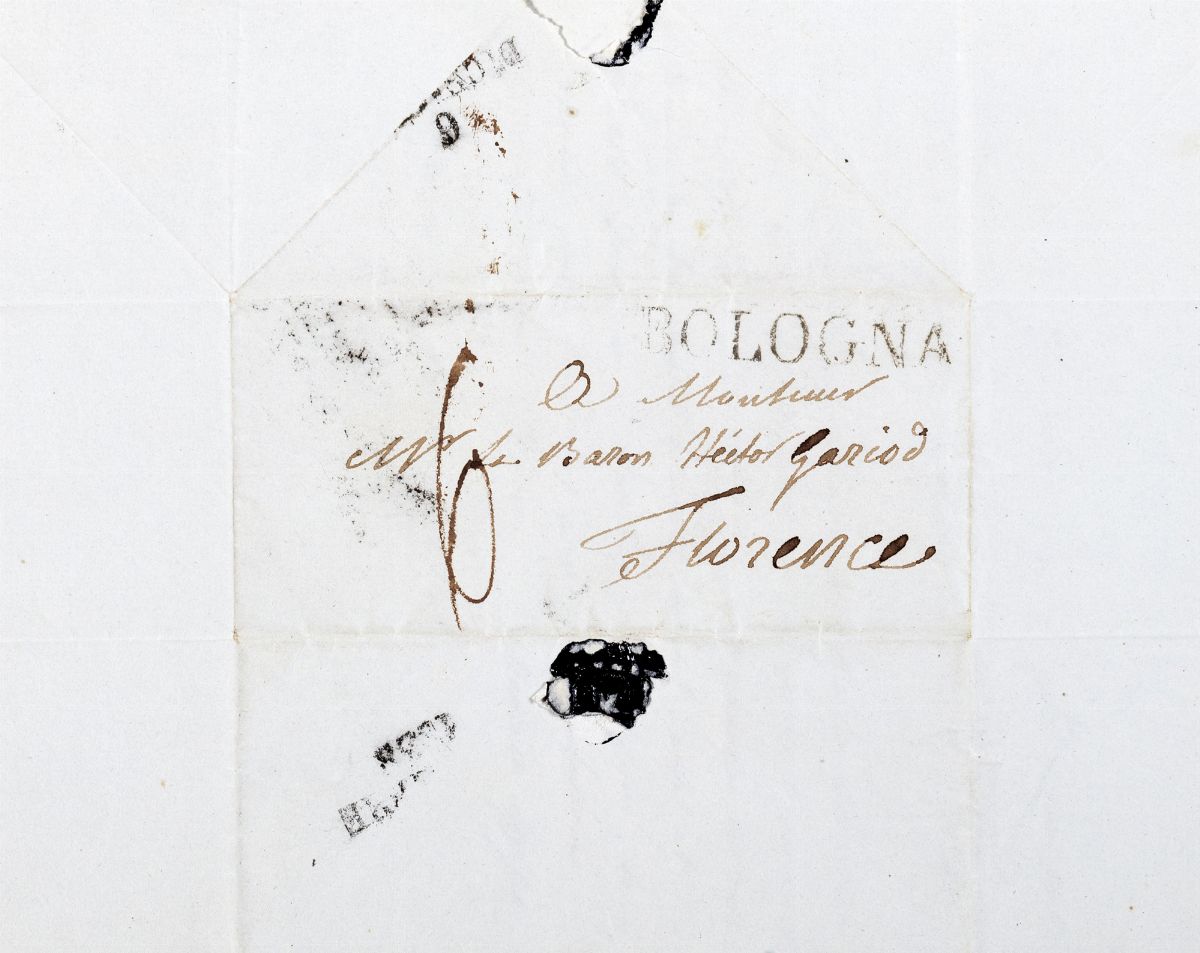 6
BOLOGNA
6
A Monsieur
Mr le Baron Héctor Gariod
Florence